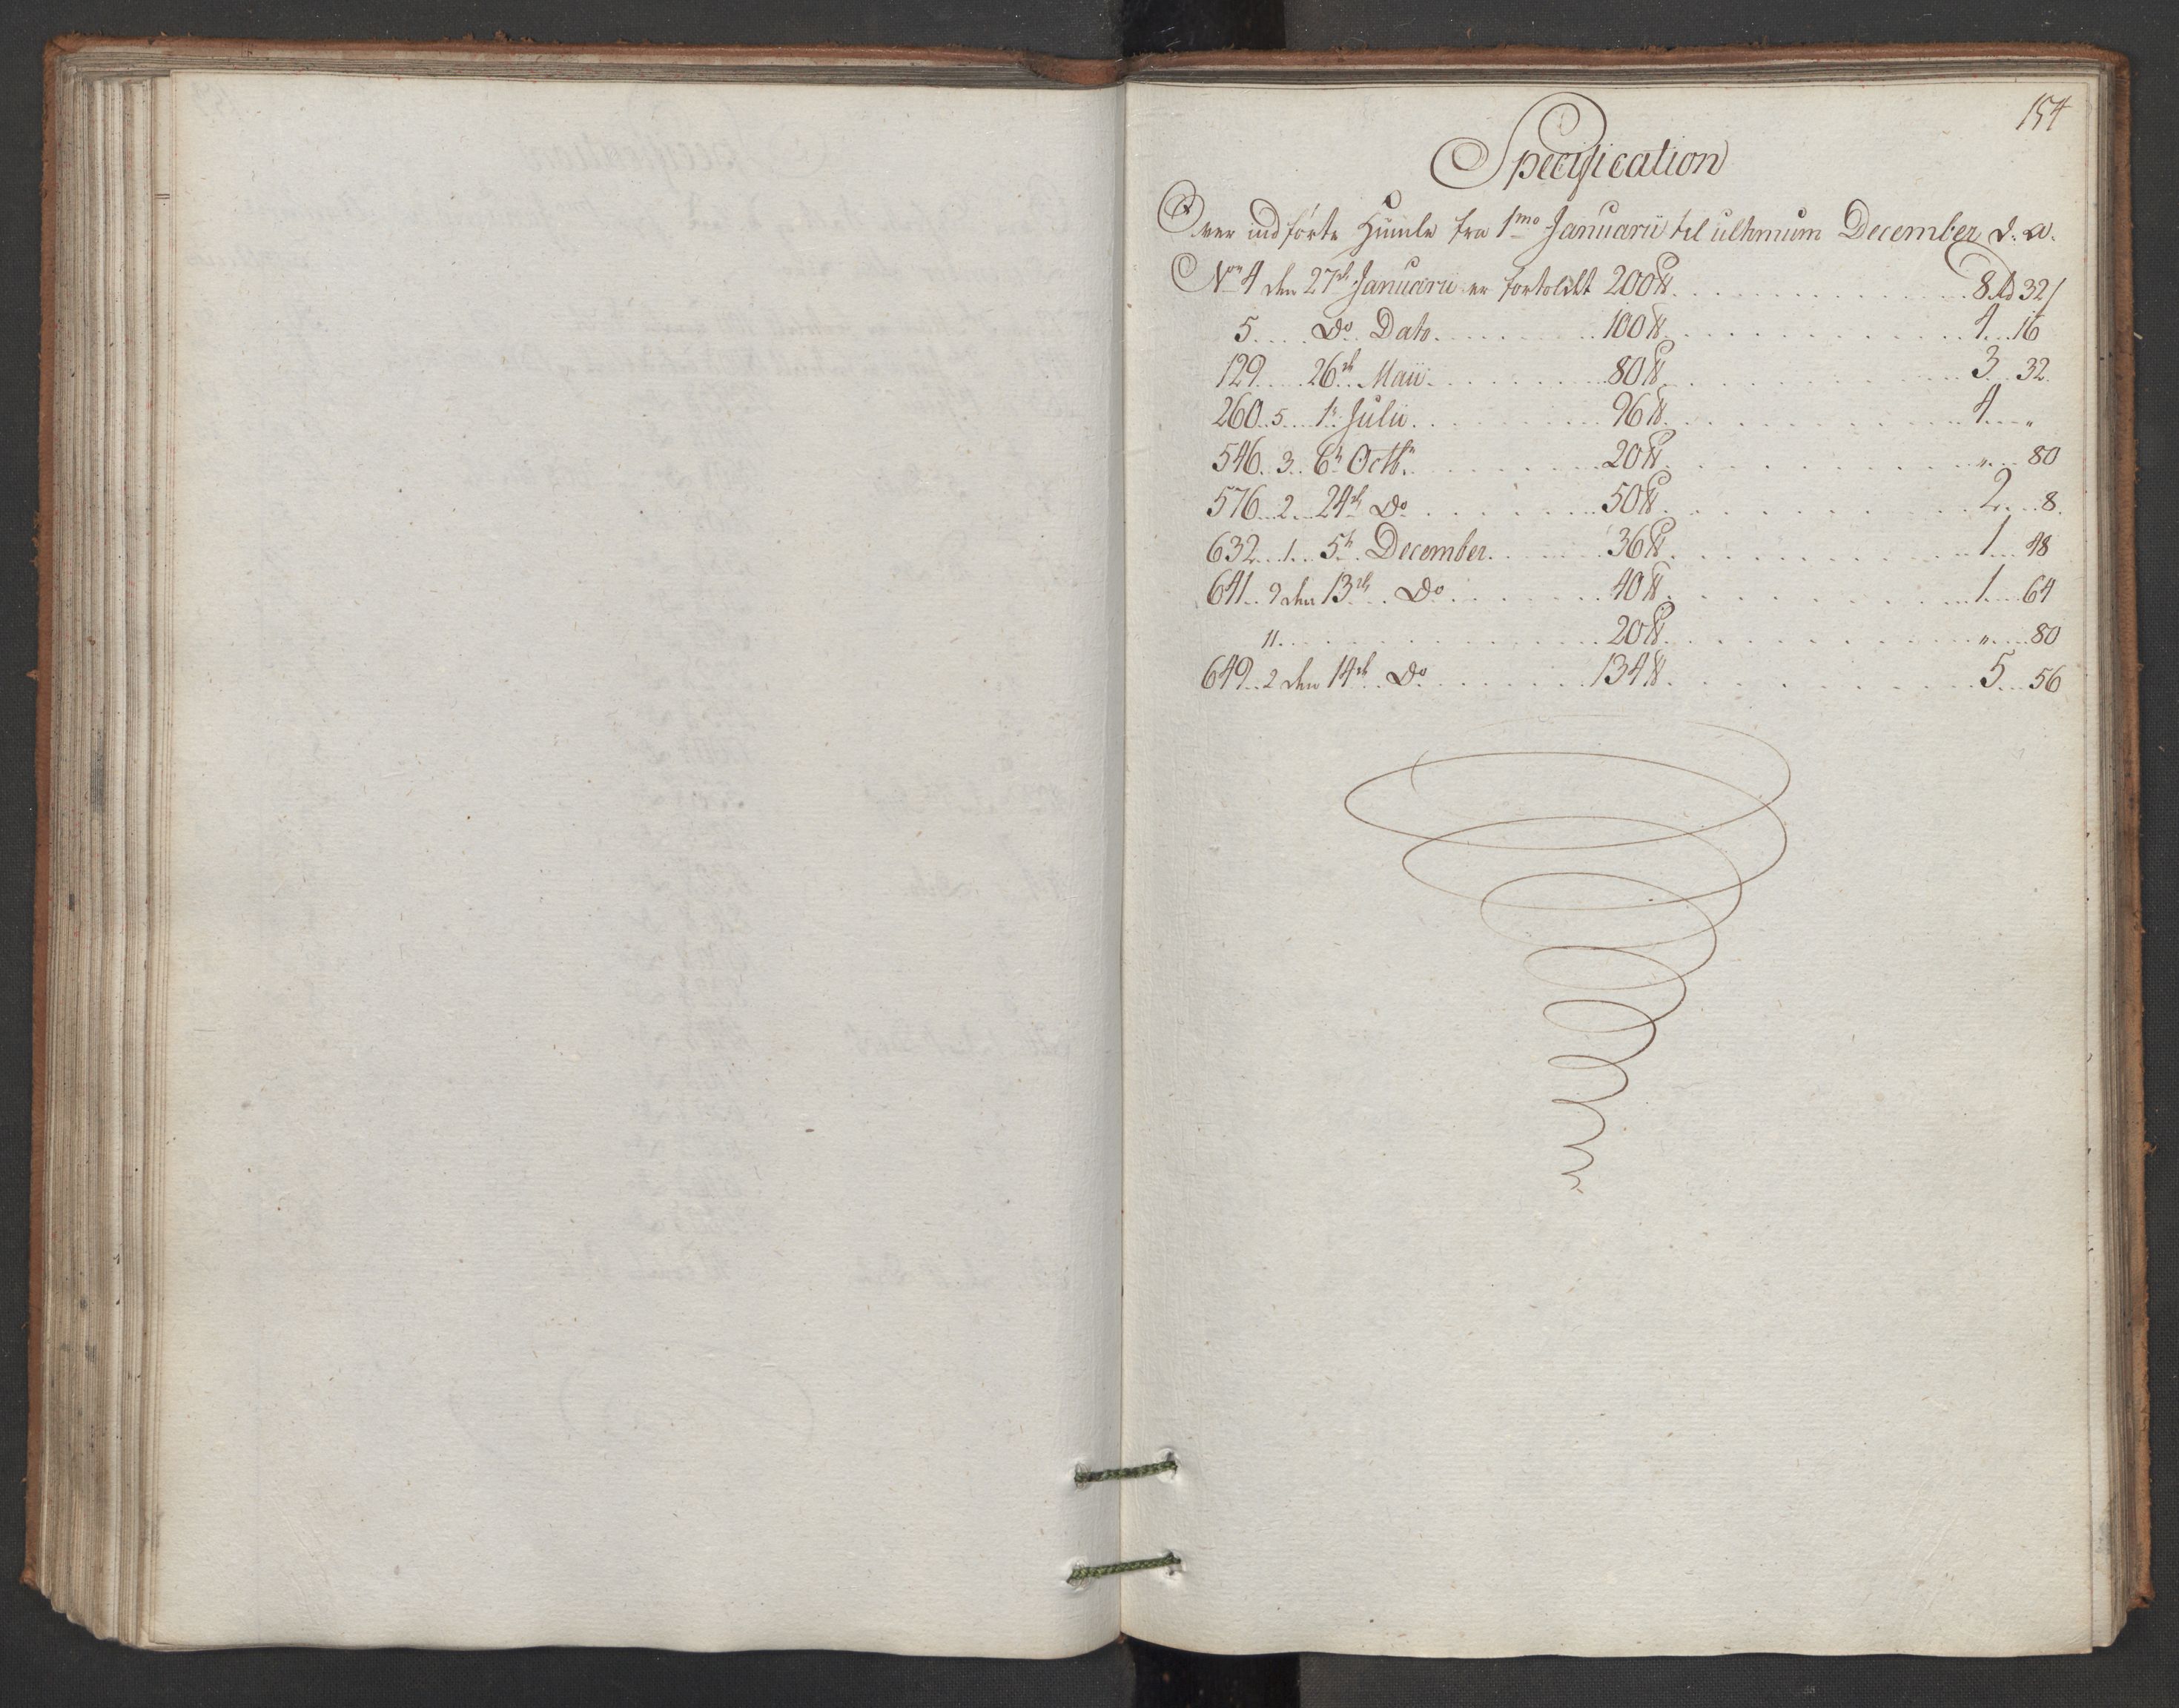 154
Specification
Over indførte Humle fra 1mo Januarii til ultimum December d: a.
No 4 den 27de Januarii er fortoldet 200 ℔ . . . . 8 Rd 32 s
5 . . . . Do Dato . . . . 100 ℔ . . . . 4 . . 16
129 . . . 26de Maii . . . . 80 ℔ . . . . 3 . . 32
260 . . 5 . . . 1te Julii . . . . 96 ℔ . . . . 4 . . . „
546 . 3 . . 6te Octbr . . . . 20 ℔ . . . . „ . . . 80
576 . . 2 . . 24de Do . . . . 50 ℔ . . . . 2 . . . 8
632 . . 1 . . 5te December . . . . 36 ℔ . . . . 1 . . . 48
641 . . 9 den 13de . . Do . . . . 40 ℔ . . . . 1 . . . 64
11 . . . . 20 ℔ . . . . „ . . . 80
649 . . 2 den 14de . . Do . . . . 134 ℔ . . . . 5 . . . 56